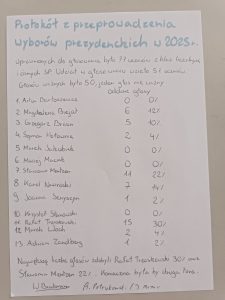 Protokół z przeprowadzenia
wyborów prezydenckich w 2025r.
Uprawnionych do głosowania było 77 uczniów z klas
i ósmych SP. Udział w głosowaniu wzięło 51 uczniów
Głosów ważnych było 50, jeden głos nieważny
oddane głosy
1. Artur Bartoszewicz 0 0%
2. Magdalena Biejat 6 12%
3. Grzegorz Braun 5 10%
4. Szymon Hołownia 2 4%
5. Marek Jakubiak 0 0%
6. Maciej Maciak 0 0%
7. Sławomir Mentzen 11 22%
8. Karol Nawrocki 7 14%
9. Joanna Senyszyn 1 2%
10. Krzysztof Stanowski 0 0%
11. Rafał Trzaskowski 15 30%
12. Marek Woch 2 4%
13. Adrian Zandberg 1 2%
Największą liczbę głosów zdobyli Rafał Trzaskowski 30% oraz
Sławomir Mentzen 22%. Konieczna była by druga tura.